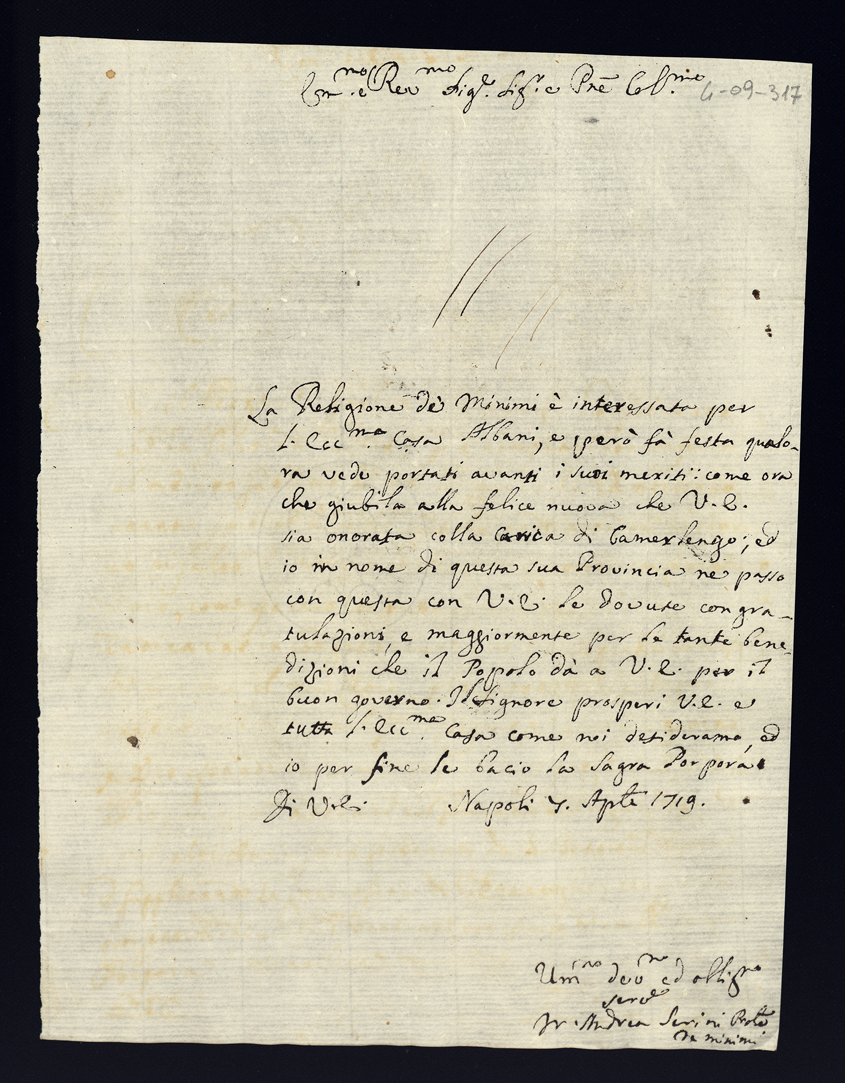 Em.mo e Rev.mo Sig.e Sig.e e Prne Col.mo
4-09-317
La Religione de Minimi è interessata per
l'Ecc.ma Casa Albani, e però fà festa qualo-
ra vede portati avanti i suoi meriti: come ora
che giubila alla felice nuova che V.E.
sia onorata colla Carica di Camerlengo; ed
io in nome di questa sua Provincia ne passo
con questa con V.E. le dovute congra-
tulazioni, e maggiormente per le tante bene-
dizioni che il Popolo dà a V.E. per il
buon governo. Il Signore prosperi V.E. e
tutta l'Ecc.ma Casa come noi desideramo, ed
io per fine le bacio la Sagra Porpora
Di V.E. Napoli 7. Aple 1719.
Um.mo dev.mo ed obblig.mo
serv.e
Fr. Andrea Serini Prle
de minimi